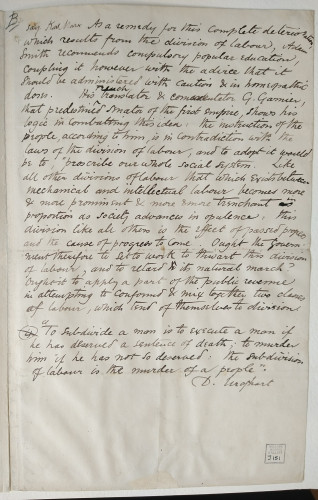 B
by Karl Marx As a remedy for this complete deterioration,
which results from the division of labour, Adam
Smith recommends compulsory popular education,
coupling it however with the advice that it
should be administered with caution & in homeopathic
doses. His french translator & commentator G. Garnier,
that predestined Senator of the first Empire, shows his
logic in combatting this idea: the instruction of the
people according to him, is in contradiction with the
laws of the division of labour, and to adopt it would
be to "proscribe our whole social system. Like
all other divisions of labour that which exists between
mechanical and intellectual labour becomes more
& more prominent & more & more trenchant in
proportion as society advances in opulence; this
division like all others is the effect of passed progress
and the cause of progress to come. Ought the Govern-
ment therefore to set to work to thwart this division
of labour, and to retard its natural march?
Ought it to apply a part of the public revenue
in attempting to confound & mix together two classes
of labour, which tend of themselves to division
"To subdivide a man is to execute a man if
he has deserved a sentence of death; to murder
him if he has not so deserved. The subdivision
of labour is the murder of a people".
D. Urquhart
J 181